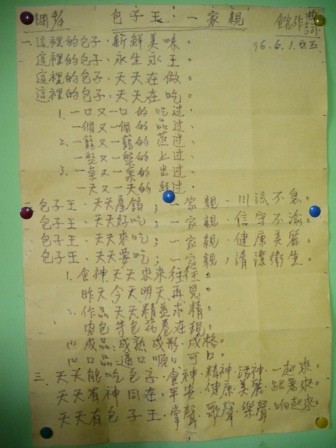 包子王：一家親
96.6.1.
一、這裡的包子．新鮮美味。
這裡的包子．永生永王。
這裡的包子．天天在做。
這裡的包子．天天在吃。
1.一口又一口的吃過。
一個又一個的 過。
2.一籠又一籠的蒸過。
一盤又一盤的上過。
3.一 又一 的出過。
一天又一天的經過。
包子王．天天 ；一家親．川流不息。
包子王．天天好吃；一家親．信守不渝。
包子王．天天來吃；一家親．健康美麗。
包子王．天天要吃；一家親．清潔衛生。
1.食神天天來來往往。
昨天今天明天再見。
2.作品天天精益求精。
肉包 包 在 。
成品：成熟成形．成格。
口口品：適口順口可口。
三、天天能吃包子．食神．精神． 神．一起來。
天天有神同在．平安．健康美麗． 來。
天天有包子王．掌聲．歌聲．樂聲．响起來。